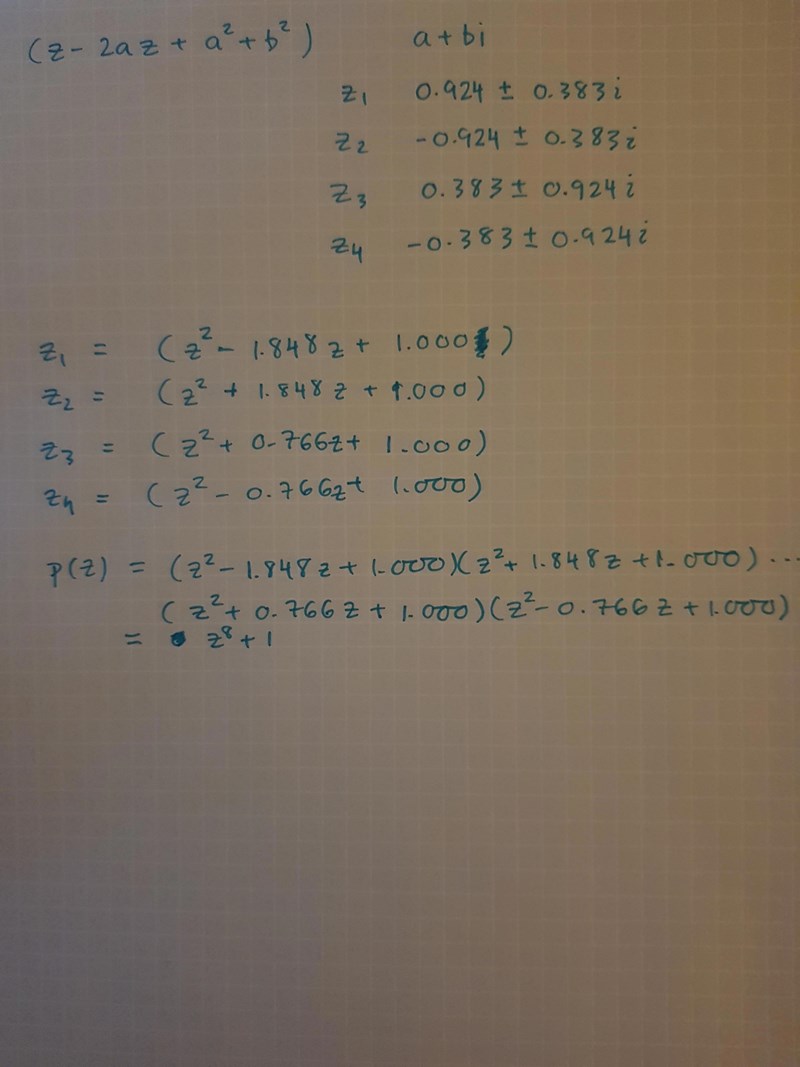 (z - 2az + a² + b²) a + bi
z₁ 0.924 ± 0.383i
z₂ -0.924 ± 0.383i
z₃ 0.383 ± 0.924i
z₄ -0.383 ± 0.924i
z₁ = (z² - 1.848z + 1.000)
z₂ = (z² + 1.848z + 1.000)
z₃ = (z² + 0.766z + 1.000)
z₄ = (z² - 0.766z + 1.000)
p(z) = (z² - 1.848z + 1.000)(z² + 1.848z + 1.000) ...
(z² + 0.766z + 1.000)(z² - 0.766z + 1.000)
= z⁸ + 1